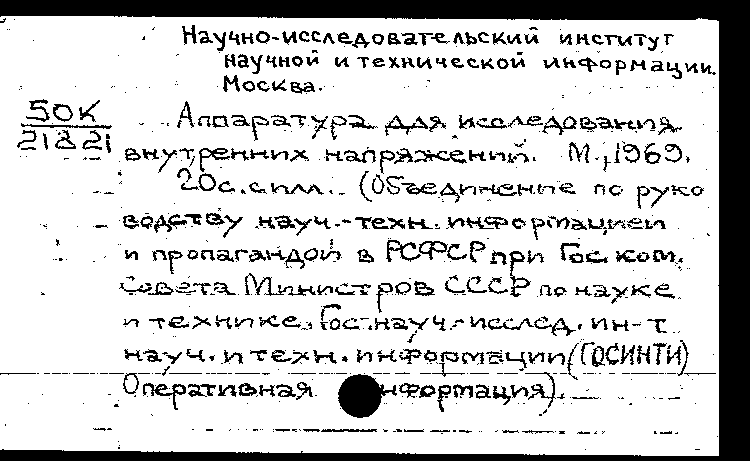 Научно-исследовательский институт
научной и технической информации.
Москва.
50К
21821
Аппаратура для исследования
внутренних напряжений. М., 1969.
20с. с илл. (Объединение по руко
водству науч.-техн. информацией
и пропагандой в РСФСР при Гос. ком.
Совета Министров СССР по науке
и технике. Гос. науч.-исслед. ин-т
науч. и техн. информации (ГОСИНТИ)
Оперативная нформация).